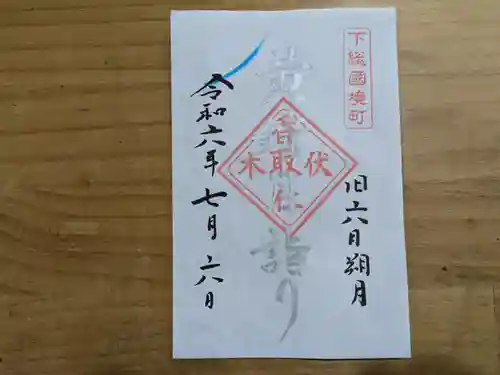 下総國境町
旧六月朔月
香取社
伏木
詣り
令和六年七月六日